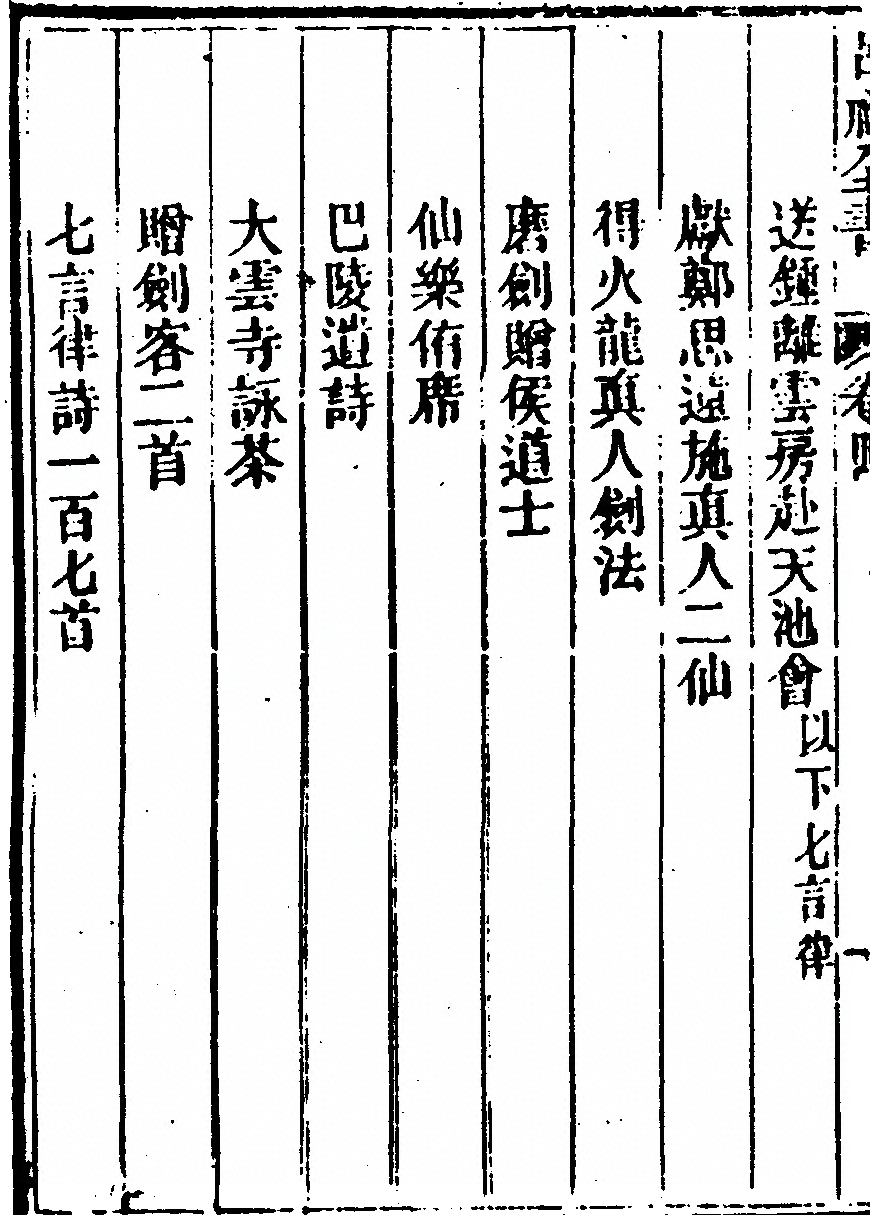 送鍾離雲房赴天池會以下七言律
獻鄭思遠施真人二仙
得火龍真人劍法
磨劍贈侯道士
仙樂侑席
巴陵遺詩
大雲寺詠茶
贈劍客二首
七言律詩一百七首